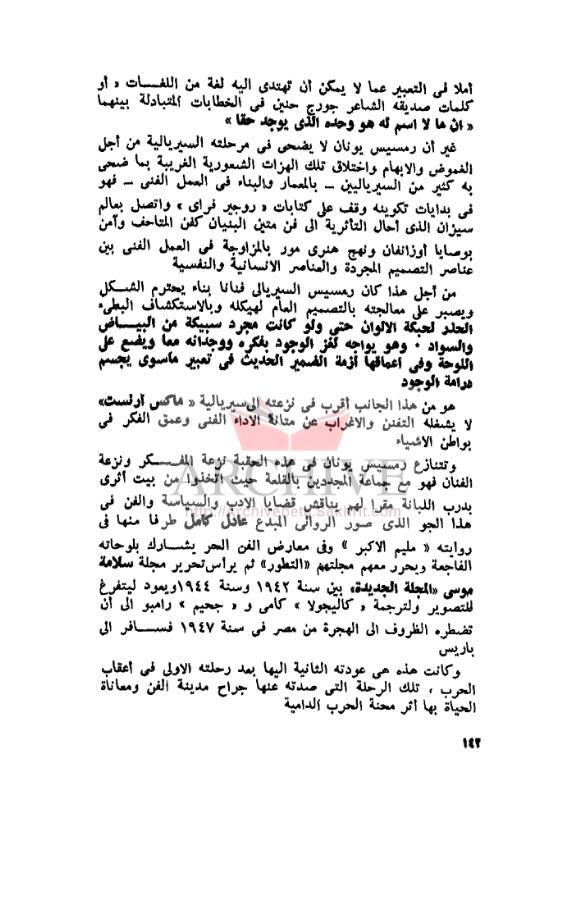 أملا فى التعبير عما لا يمكن أن تهتدى اليه لغة من اللغــات « أو
كلمات صديقه الشاعر جورج حنين فى الخطابات المتبادلة بينهما
« ان ما لا اسم له هو وحده الذى يوجد حقا »
غير أن رمسيس يونان لا يضحى فى مرحلته السيريالية من أجل
الغموض والابهام واختلاق تلك الهزات الشعورية الغريبة بما ضحى
به كثير من السيرياليين – بالمعمار والبناء فى العمل الفنى – فهو
فى بدايات تكوينه وقف على كتابات « روجير فراى » واتصل بعالم
سيزان الذى أحال التأثرية الى فن متين البنيان كفن المتاحف وآمن
بوصايا أوزانفان ونهج هنرى مور بالمزاوجة فى العمل الفنى بين
عناصر التصميم المجردة والعناصر الانسانية والنفسية
من أجل هذا كان رمسيس السيريالى فنانا بناء يحترم الشــكل
ويصبر على معالجته بالتصميم العام لهيكله وبالاستكشاف البطىء
الحذر لحبكة الالوان حتى ولو كانت مجرد سبيكة من البيــاض
والسواد ٠ وهو يواجه لغز الوجود بفكره ووجدانه معا ويضع على
اللوحة وفى اعماقها أزمة الضمير الحديث فى تعبير ماسوى يجسم
درامة الوجود
هو من هذا الجانب أقرب فى نزعته الى سيريالية « ماكس ارنست»
لا يشغله التفنن والاغراب عن متانة الاداء الفنى وعمق الفكر فى
بواطن الاشياء
وتتنازع رمسيس يونان فى هذه الحقبة نزعة المفــكر ونزعة
الفنان فهو مع جماعة المجددين بالقلعة حيث اتخذوا من بيت أثرى
بدرب اللبانة مقرا لهم يناقش قضايا الادب والسياسة والفن فى
هذا الجو الذى صور الروائى المبدع عادل كامل طرفا منها فى
روايته « مليم الاكبر » وفى معارض الفن الحر يشــارك بلوحاته
الفاجعة ويحرر معهم مجلتهم «التطور» ثم يرأس تحرير مجلة سلامة
موسى «المجلة الجديدة» بين سنة ١٩٤٢ وسنة ١٩٤٤ ويعود ليتفرغ
للتصوير ولترجمة « كاليجولا » كامى و « جحيم » رامبو الى أن
تضطره الظروف الى الهجرة من مصر فى سنة ١٩٤٧ فســافر الى
باريس
وكانت هذه هى عودته الثانية اليها بعد رحلته الاولى فى أعقاب
الحرب ، تلك الرحلة التى صدته عنها جراح مدينة الفن ومعاناة
الحياة بها أثر محنة الحرب الدامية
١٤٢
ARCHIVE
http://archivebeta.Sakhrit.com